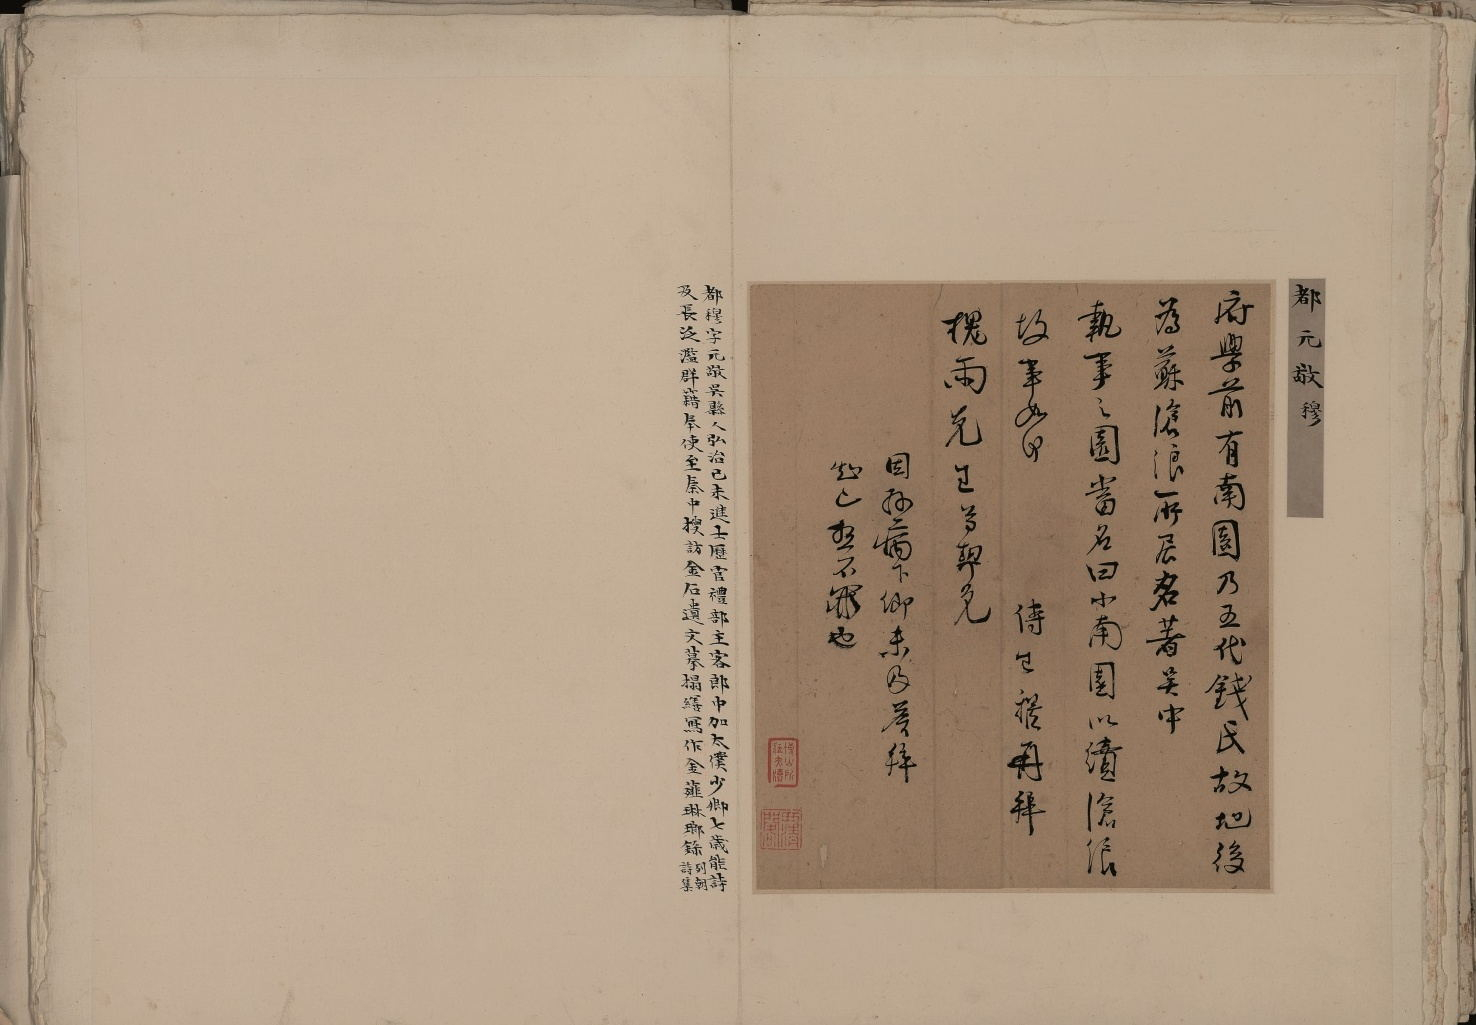 都元敬穆
府學前有南園乃五代錢氏故地後
為蘇滄浪所居名著吳中
執事之園當名曰小南園以續滄浪
故事如何 侍生穆再拜
槐雨兄 尊契兄
因孫病下鄉未及答拜
也
都穆字元敬吳縣人弘治己未進士歷官禮部主客郎中加太僕少卿七歲能詩
及長泛濫群籍奉使至秦中搜訪金石遺文摹搨繕寫作金薤琳瑯錄列朝詩集